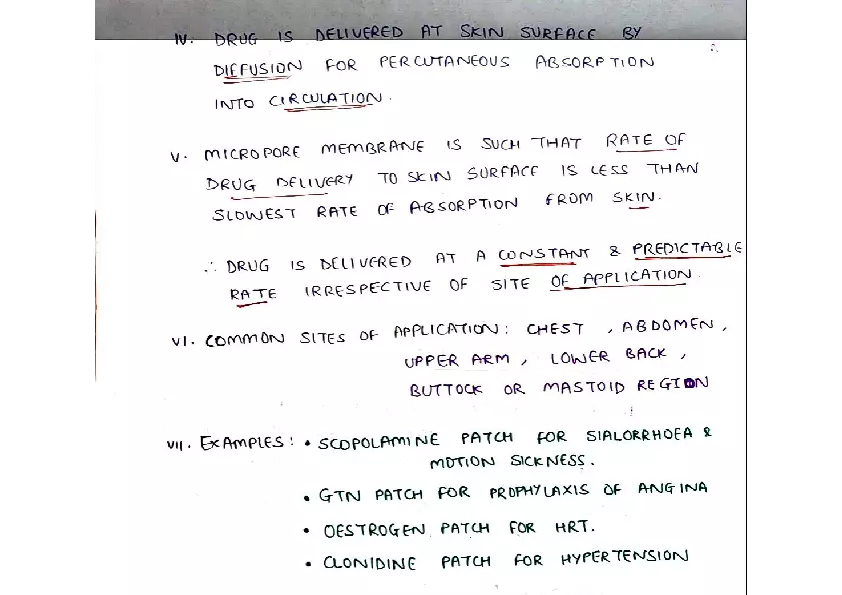 IV. DRUG IS DELIVERED AT SKIN SURFACE BY
DIFFUSION FOR PERCUTANEOUS ABSORPTION
INTO CIRCULATION.
V. MICROPORE MEMBRANE IS SUCH THAT RATE OF
DRUG DELIVERY TO SKIN SURFACE IS LESS THAN
SLOWEST RATE OF ABSORPTION FROM SKIN.
∴ DRUG IS DELIVERED AT A CONSTANT & PREDICTABLE
RATE IRRESPECTIVE OF SITE OF APPLICATION.
VI. COMMON SITES OF APPLICATION: CHEST, ABDOMEN,
UPPER ARM, LOWER BACK,
BUTTOCK OR MASTOID REGION
VII. EXAMPLES: • SCOPOLAMINE PATCH FOR SIALORRHOEA &
MOTION SICKNESS.
• GTN PATCH FOR PROPHYLAXIS OF ANGINA
• OESTROGEN PATCH FOR HRT.
• CLONIDINE PATCH FOR HYPERTENSION